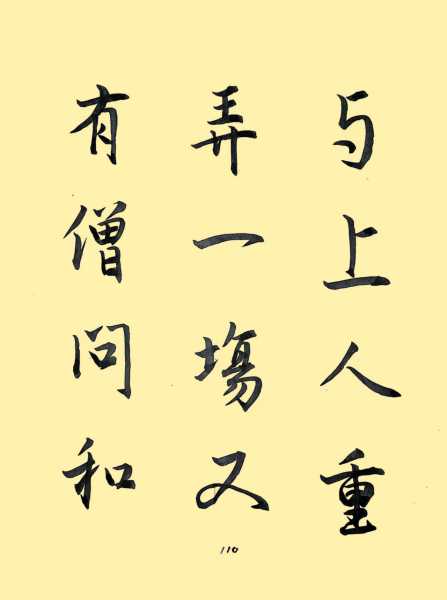 与上人重
弄一場又
有僧問和
110